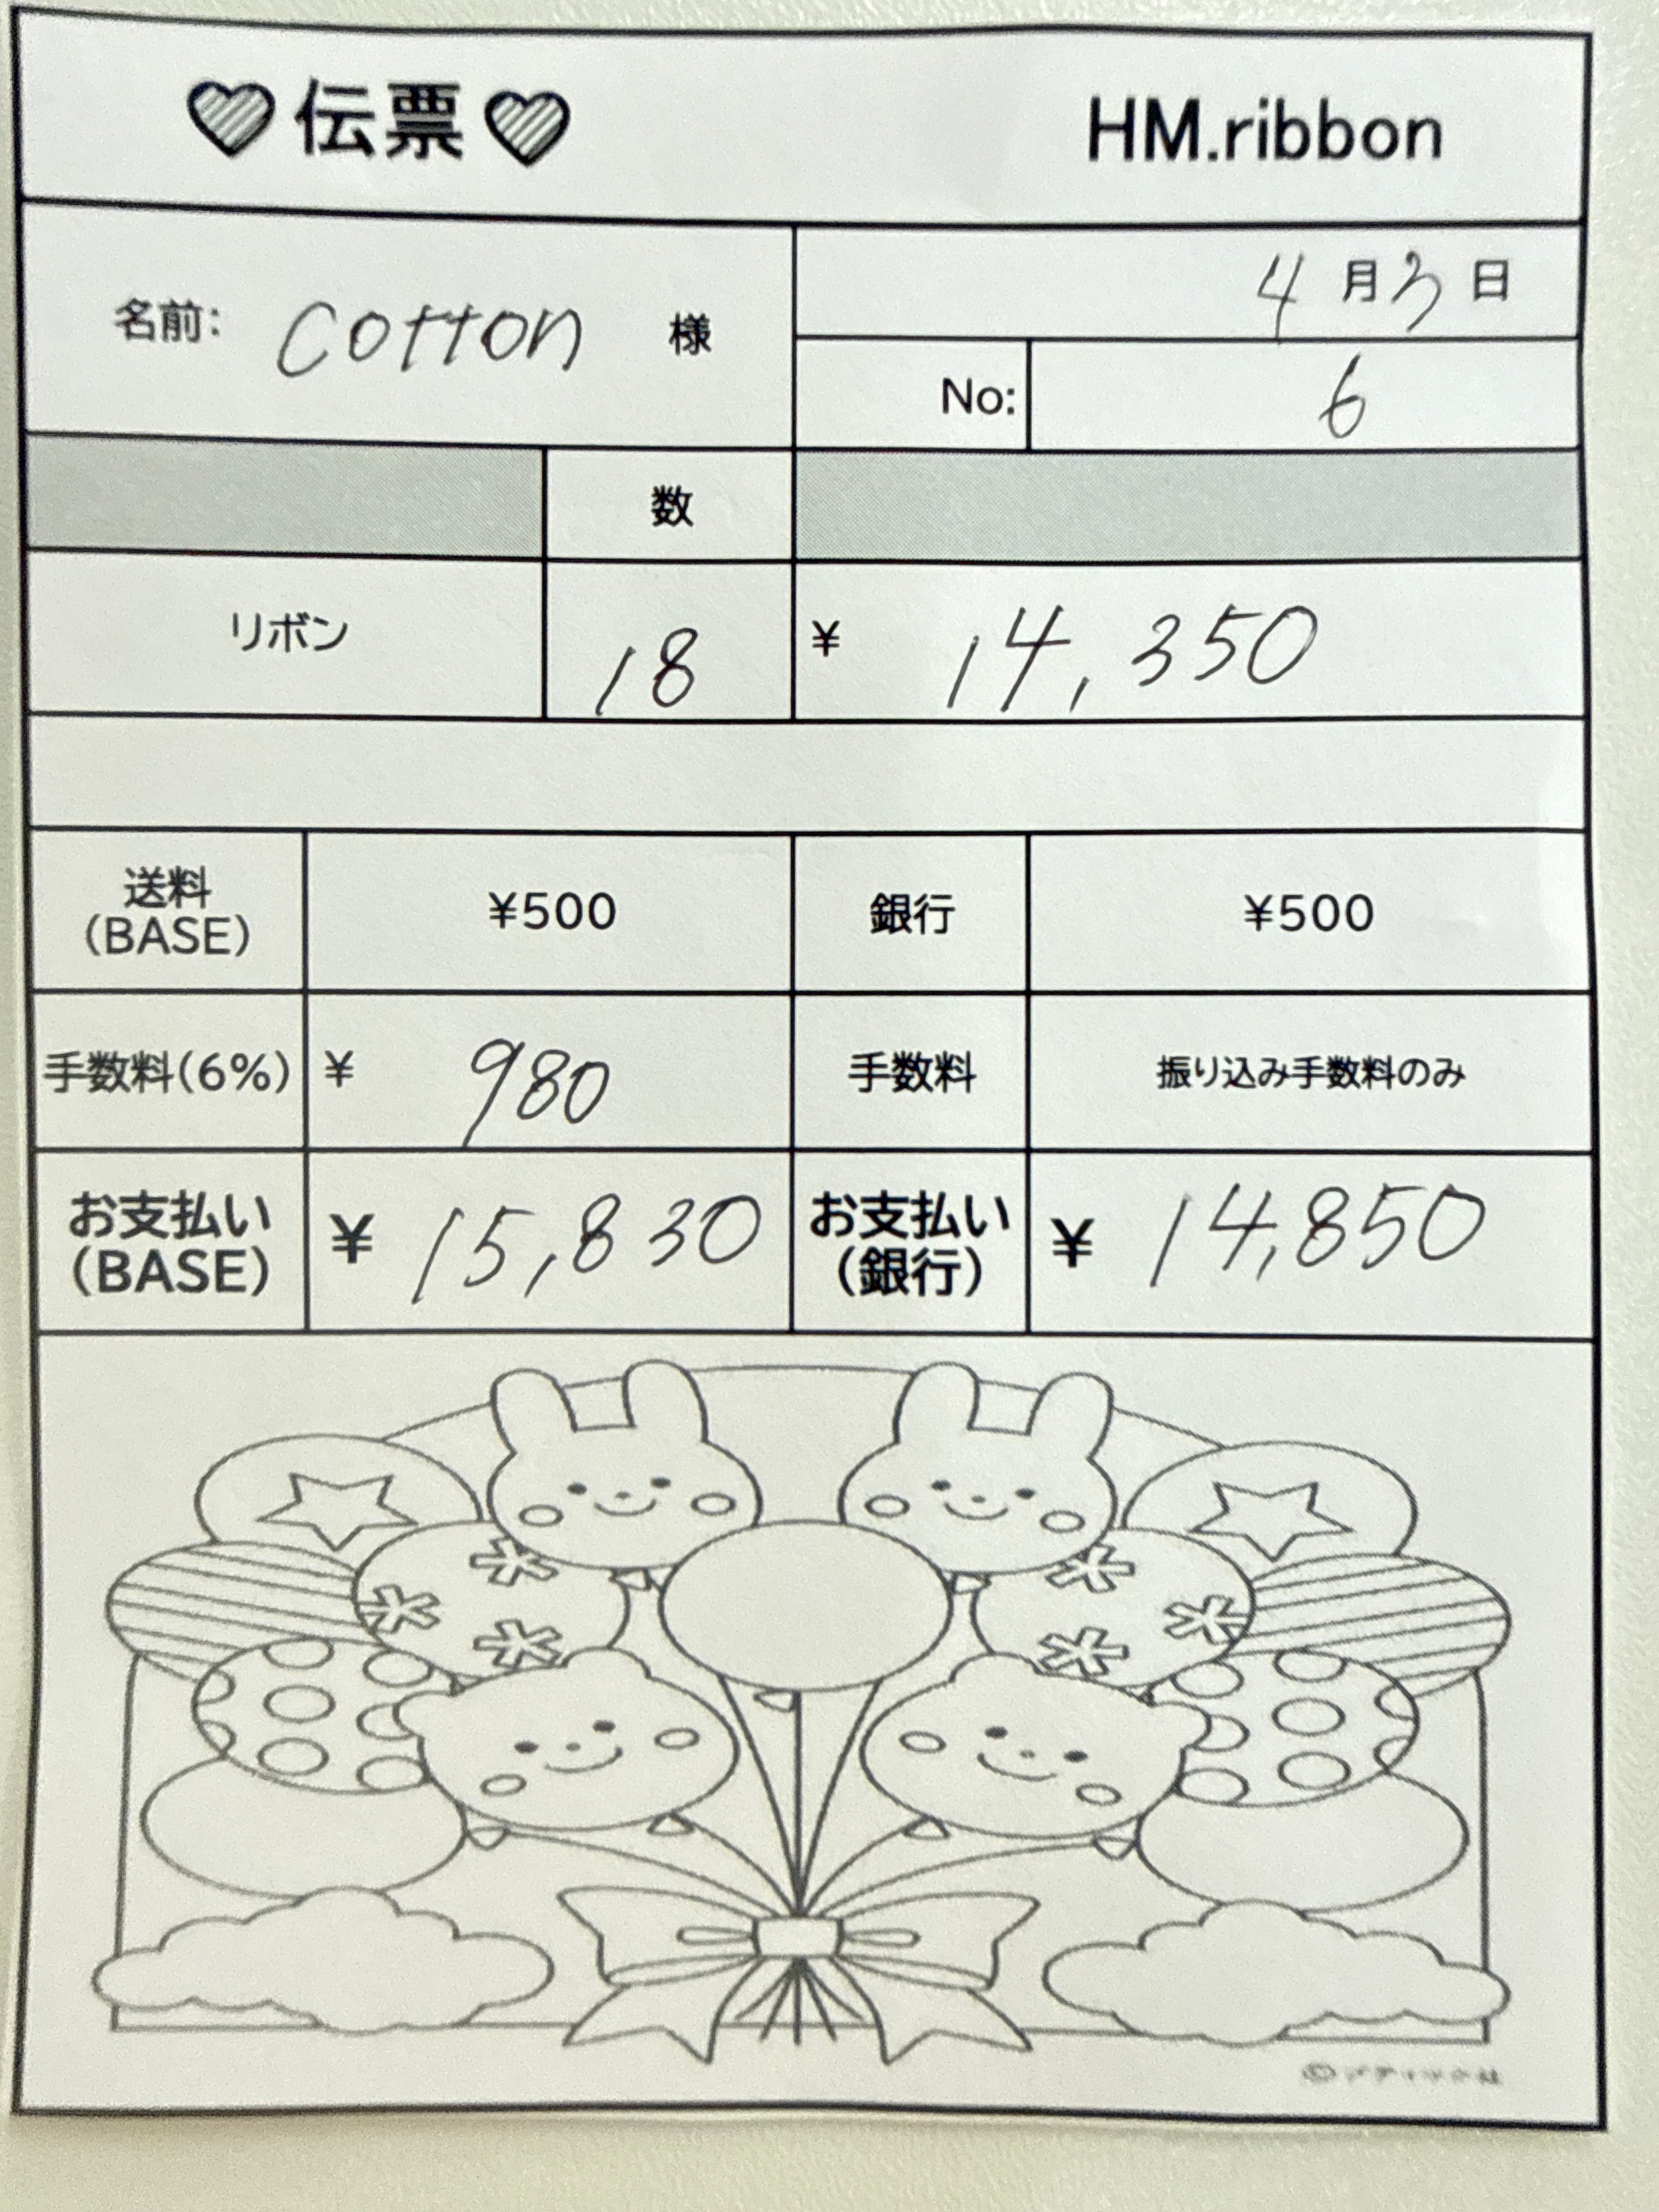 伝票 HM.ribbon
4月3日
名前: cotton 様
No: 6
数
リボン 18 ¥ 14,350
送料(BASE) ¥500 銀行 ¥500
手数料(6%) ¥ 980 手数料 振り込み手数料のみ
お支払い(BASE) ¥ 15,830 お支払い(銀行) ¥ 14,850